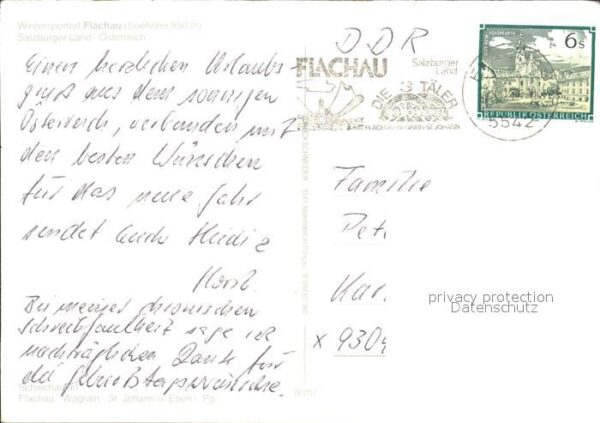 Wintersportort Flachau (Seehöhe 950 m)
Salzburger Land - Österreich
Einen herzlichen Urlaubs-
gruß aus dem sonnigen
Österreich, verbunden mit
den besten Wünschen
für das neue Jahr
sendet euch Heidi &
Horst.
Bei meiner chronischen
Schreibfaulheit sage ich
nachträglichen Dank für
die Geburtstagswünsche.
Flachau - Wagrain - St. Johann u. Eben i. Pg.
DDR
FLACHAU
Salzburger
Land
DIE 3 TÄLER
FLACHAU WAGRAIN ST. JOHANN
5542
6 S
REPUBLIK ÖSTERREICH
Familie
Pet
Kar
x 9304
privacy protection
Datenschutz